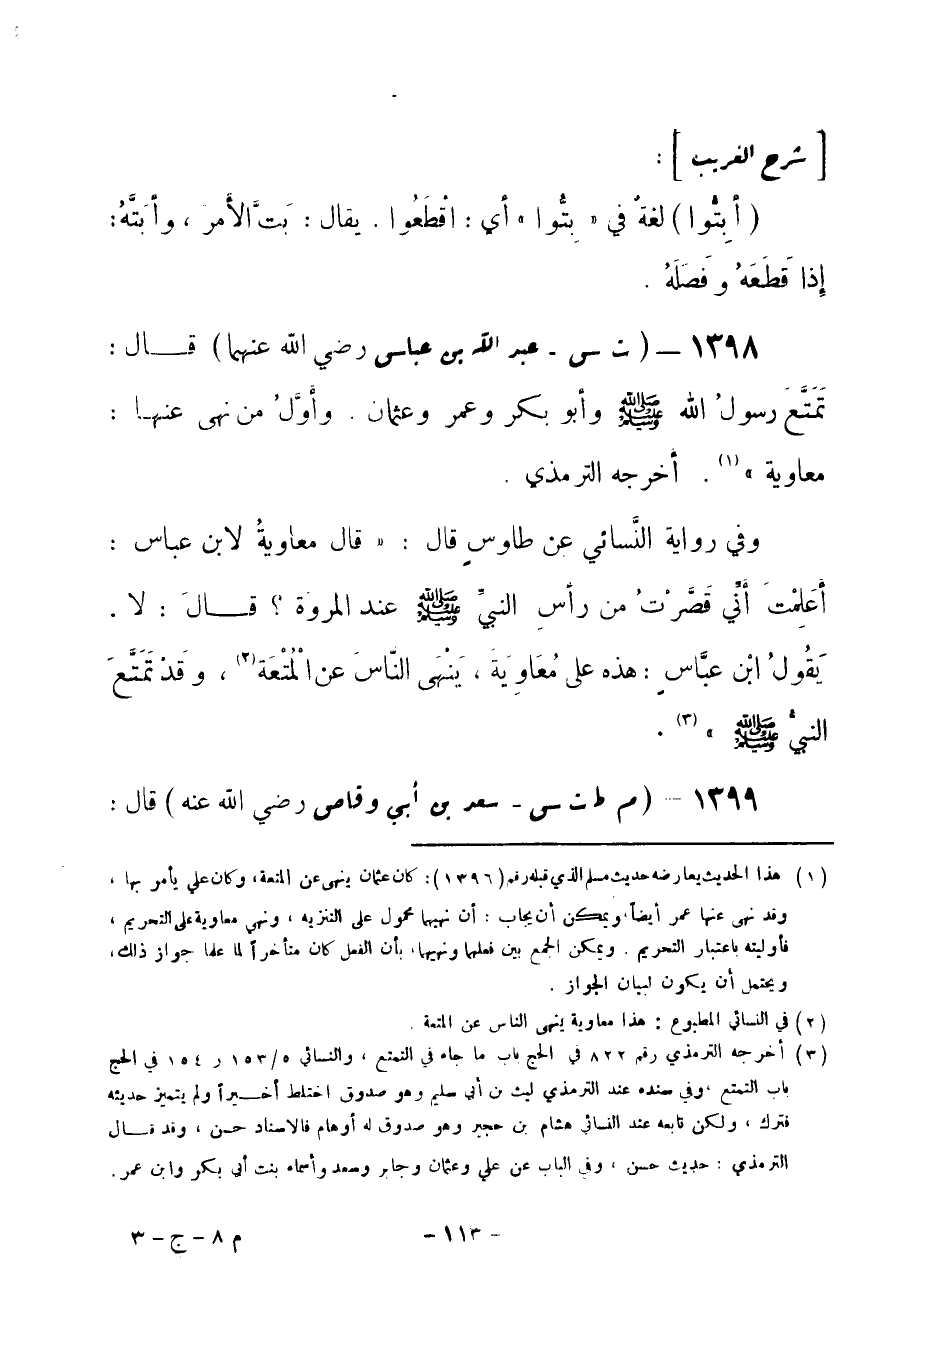 [ شرح الغريب ] :
( أَبِتُّوا ) لغةٌ في « بِتُّوا » أي : اقْطَعُوا . يقال : بَتَّ الأَمرَ ، وأَبَتَّهُ :
إِذا قَطَعَهُ وفَصَلَهُ .
١٣٩٨ – ( ت س - عبد الله بن عباس رضي الله عنهما ) قــال :
تَمَتَّعَ رسولُ الله ﷺ وأبو بكر وعمر وعثمان . وأَوَّلُ من نهى عنهـا :
معاوية » (١) . أخرجه الترمذي .
وفي رواية النَّسائي عن طاوسٍ قال : « قال معاويةُ لابن عباس :
أَعَلِمْتَ أَنِّي قَصَّرْتُ من رأسِ النبيِّ ﷺ عند المروَة ؟ قــالَ : لا .
يَقُولُ ابن عبَّاسٍ : هذه على مُعَاوِيَةَ ، يَنْهَى النَّاسَ عن الْمُتْعَةِ (٢) ، وقَدْ تَمَتَّعَ
النبيُّ ﷺ » (٣) .
١٣٩٩ – ( م ط ت س - سعد بن أَبي وقاص رضي الله عنه ) قال :
(١) هذا الحديث يعارضه حديث مسلم الذي قبله رقم (١٣٩٦) : كان عثمان ينهى عن المتعة، وكان علي يأمر بها ،
وقد نهى عنها عمر أيضاً، ويمكن أن يجاب : أن نهيهما محمول على التنزيه ، ونهي معاوية على التحريم ،
فأوليته باعتبار التحريم . ويمكن الجمع بين فعلهما ونهيهما، بأن الفعل كان متأخراً لما علما جواز ذلك،
ويحتمل أن يكون لبيان الجواز .
(٢) في النسائي المطبوع : هذا معاوية ينهى الناس عن المتعة .
(٣) أخرجه الترمذي رقم ٨٢٢ في الحج باب ما جاء في التمتع ، والنسائي ٥/١٥٣ و ١٥٤ في الحج
باب التمتع ، وفي سنده عند الترمذي ليث بن أبي سليم وهو صدوق اختلط أخــيراً ولم يتميز حديثه
فترك ، ولكن تابعه عند النسائي هشام بن حجير وهو صدوق له أوهام فالاسناد حسن ، وقد قــال
الترمذي : حديث حسن ، وفي الباب عن علي وعثمان وجابر وسعد وأسماء بنت أبي بكر وابن عمر .
- ١١٣ -
م ٨ - ج - ٣